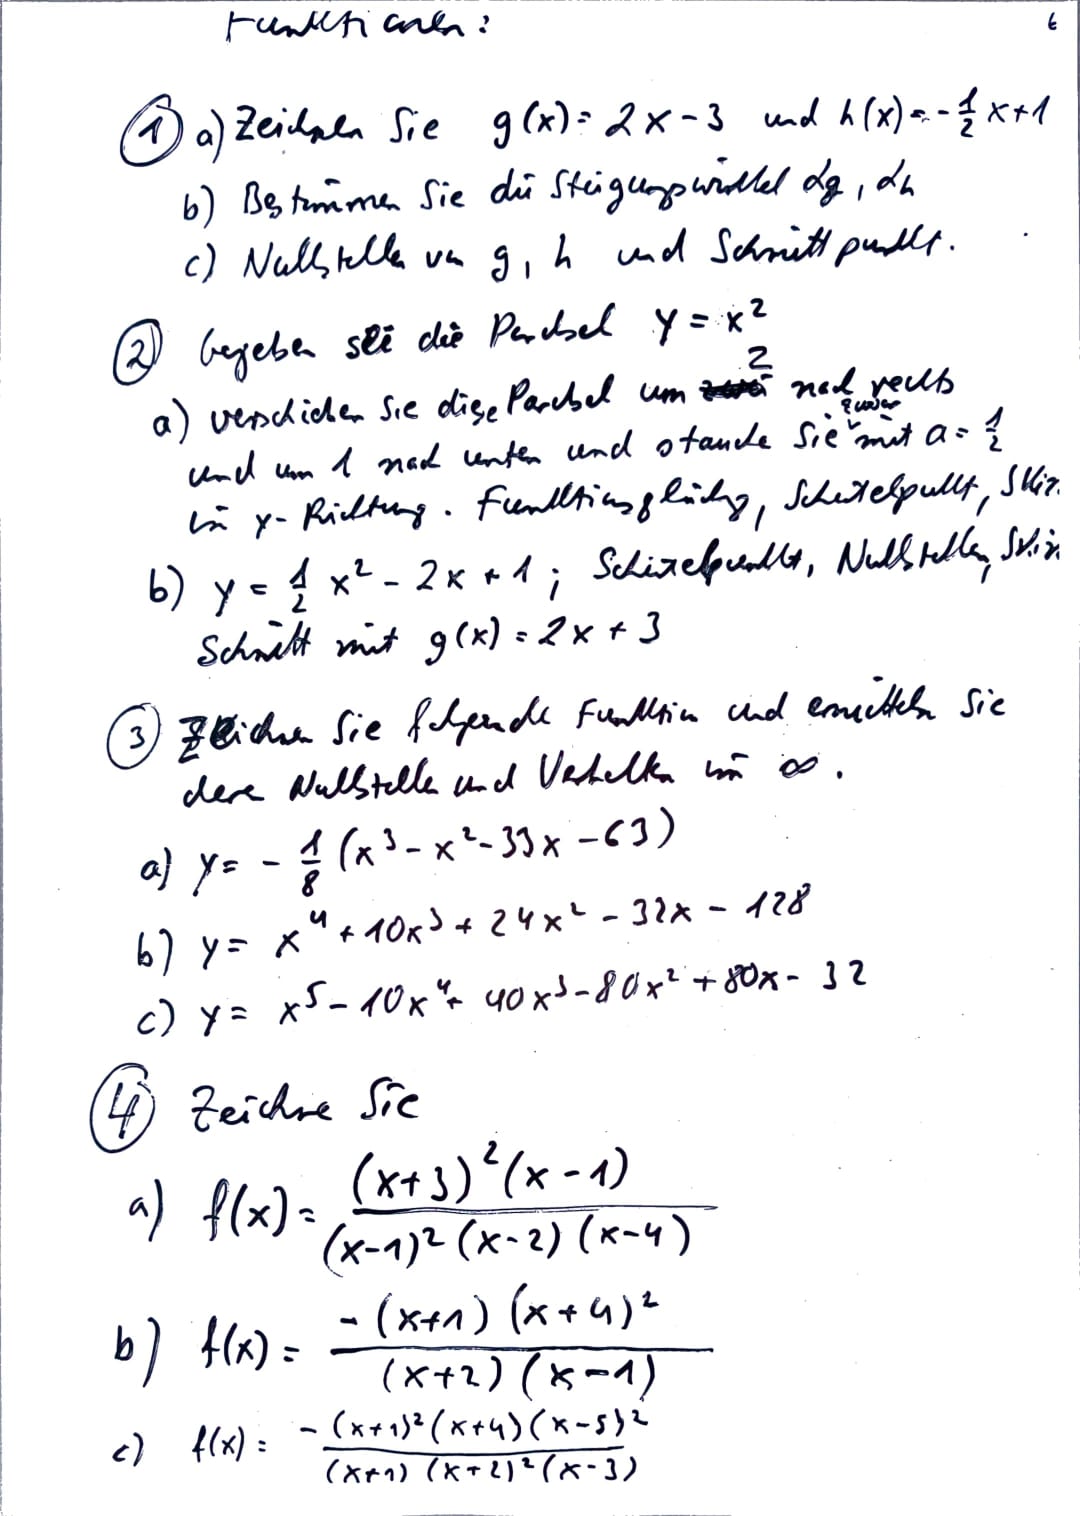 Funktionen:
6
① a) Zeichnen Sie g(x) = 2x - 3 und h(x) = - 1/2 x + 1
b) Bestimmen Sie die Steigungswinkel αg, αh
c) Nullstelle von g, h und Schnittpunkt.
② Gegeben sei die Parabel y = x²
a) verschieben Sie diese Parabel um 2 nach rechts
und um 1 nach unten und stauche Sie zuvor mit a = 1/2
in y-Richtung. Funktionsgleichg, Scheitelpunkt, Skiz.
b) y = 1/2 x² - 2x + 1; Scheitelpunkt, Nullstellen, Skiz
Schnitt mit g(x) = 2x + 3
③ Zeichnen Sie folgende Funktion und ermitteln Sie
deren Nullstelle und Verhalten im ∞.
a) y = - 1/8 (x³ - x² - 33x - 63)
b) y = x⁴ + 10x³ + 24x² - 32x - 128
c) y = x⁵ - 10x⁴ + 40x³ - 80x² + 80x - 32
④ Zeichne Sie
a) f(x) = (x+3)²(x-1) / (x-1)²(x-2)(x-4)
b) f(x) = -(x+1)(x+4)² / (x+2)(x-1)
c) f(x) = -(x+1)²(x+4)(x-5)² / (x+1)(x+2)²(x-3)